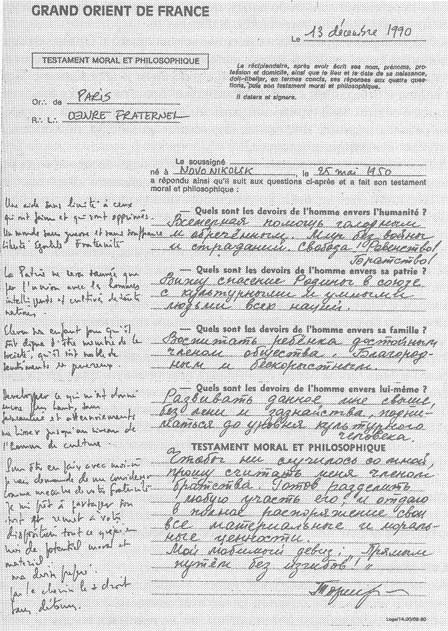 GRAND ORIENT DE FRANCE
Le 13 décembre 1990
TESTAMENT MORAL ET PHILOSOPHIQUE
Le récipiendaire, après avoir écrit ses nom, prénoms, pro-
fession et domicile, ainsi que le lieu et la date de sa naissance,
doit libeller, en termes concis, ses réponses aux quatre ques-
tions, puis son testament moral et philosophique.
Il datera et signera.
Or∴ de PARIS
R∴ L∴ OEUVRE FRATERNEL
Le soussigné
né à NOVONIKOLSK, le 25 mai 1950
a répondu ainsi qu'il suit aux questions ci-après et a fait son testament
moral et philosophique :
Une aide sans limite à ceux
qui ont faim et qui sont opprimés.
Un monde sans guerre et sans souffrance
Liberté Egalité Fraternité
— Quels sont les devoirs de l'homme envers l'humanité ?
Всемерная помощь голодным
и обречённым. Мир без войны
и страданий. Свобода! Равенство!
Братство!
La Patrie ne sera sauvée que
par l'union avec les hommes
intelligents et cultivés de toutes
nations.
— Quels sont les devoirs de l'homme envers sa patrie ?
Вижу спасение Родины в союзе
с культурными и умными
людьми всех наций.
Elever un enfant pour qu'il
soit digne d'être membre de la
société, qu'il soit noble de
sentiments et généreux.
— Quels sont les devoirs de l'homme envers sa famille ?
Воспитать ребёнка достойным
членом общества. Благород-
ным и бескорыстным.
Développer ce qui m'est donné
sans
jusqu'au niveau de
l'homme de culture.
— Quels sont les devoirs de l'homme envers lui-même ?
Развивать данное мне свыше,
без лени и зазнайства, подни-
маться до уровня культурного
человека.
TESTAMENT MORAL ET PHILOSOPHIQUE
Чтобы ни случилось со мной,
прошу считать меня членом
братства. Готов разделить
любую участь его и отдаю
в полное распоряжение свои
все материальные и мораль-
ные ценности.
Мой любимый девиз: „Прямым
путём без изгибов!"
je vous demande de me considérer
comme membre de votre fraternité
je suis prêt à partager son
sort et remets à votre
disposition tout ce que j'ai
de potentiel moral et
matériel.
ma devise préférée
par le chemin le + droit
sans détours.